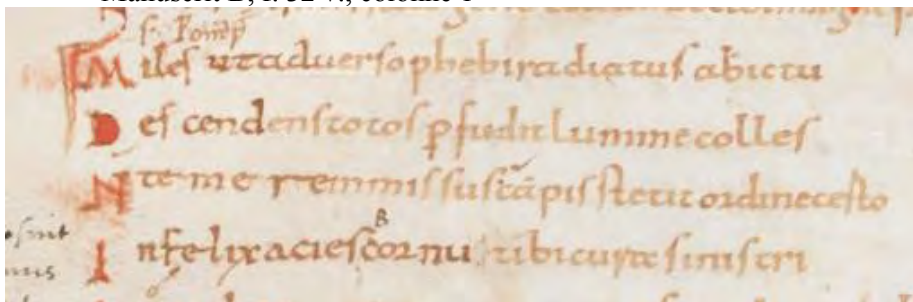 Manuscrit B, f. 32 v., colonne 1
Miles ut aduerso phebi radiatus abictu
Descendens totos ꝑfudit Lumine colles
N temere inmissus cāpis stetit ordine certo
sint
Infelix acies cornu tibi cura sinistri